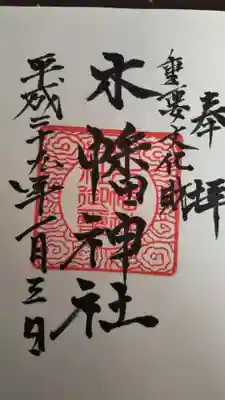 奉拝
重要文化財
木幡神社
平成二十九年一月三日